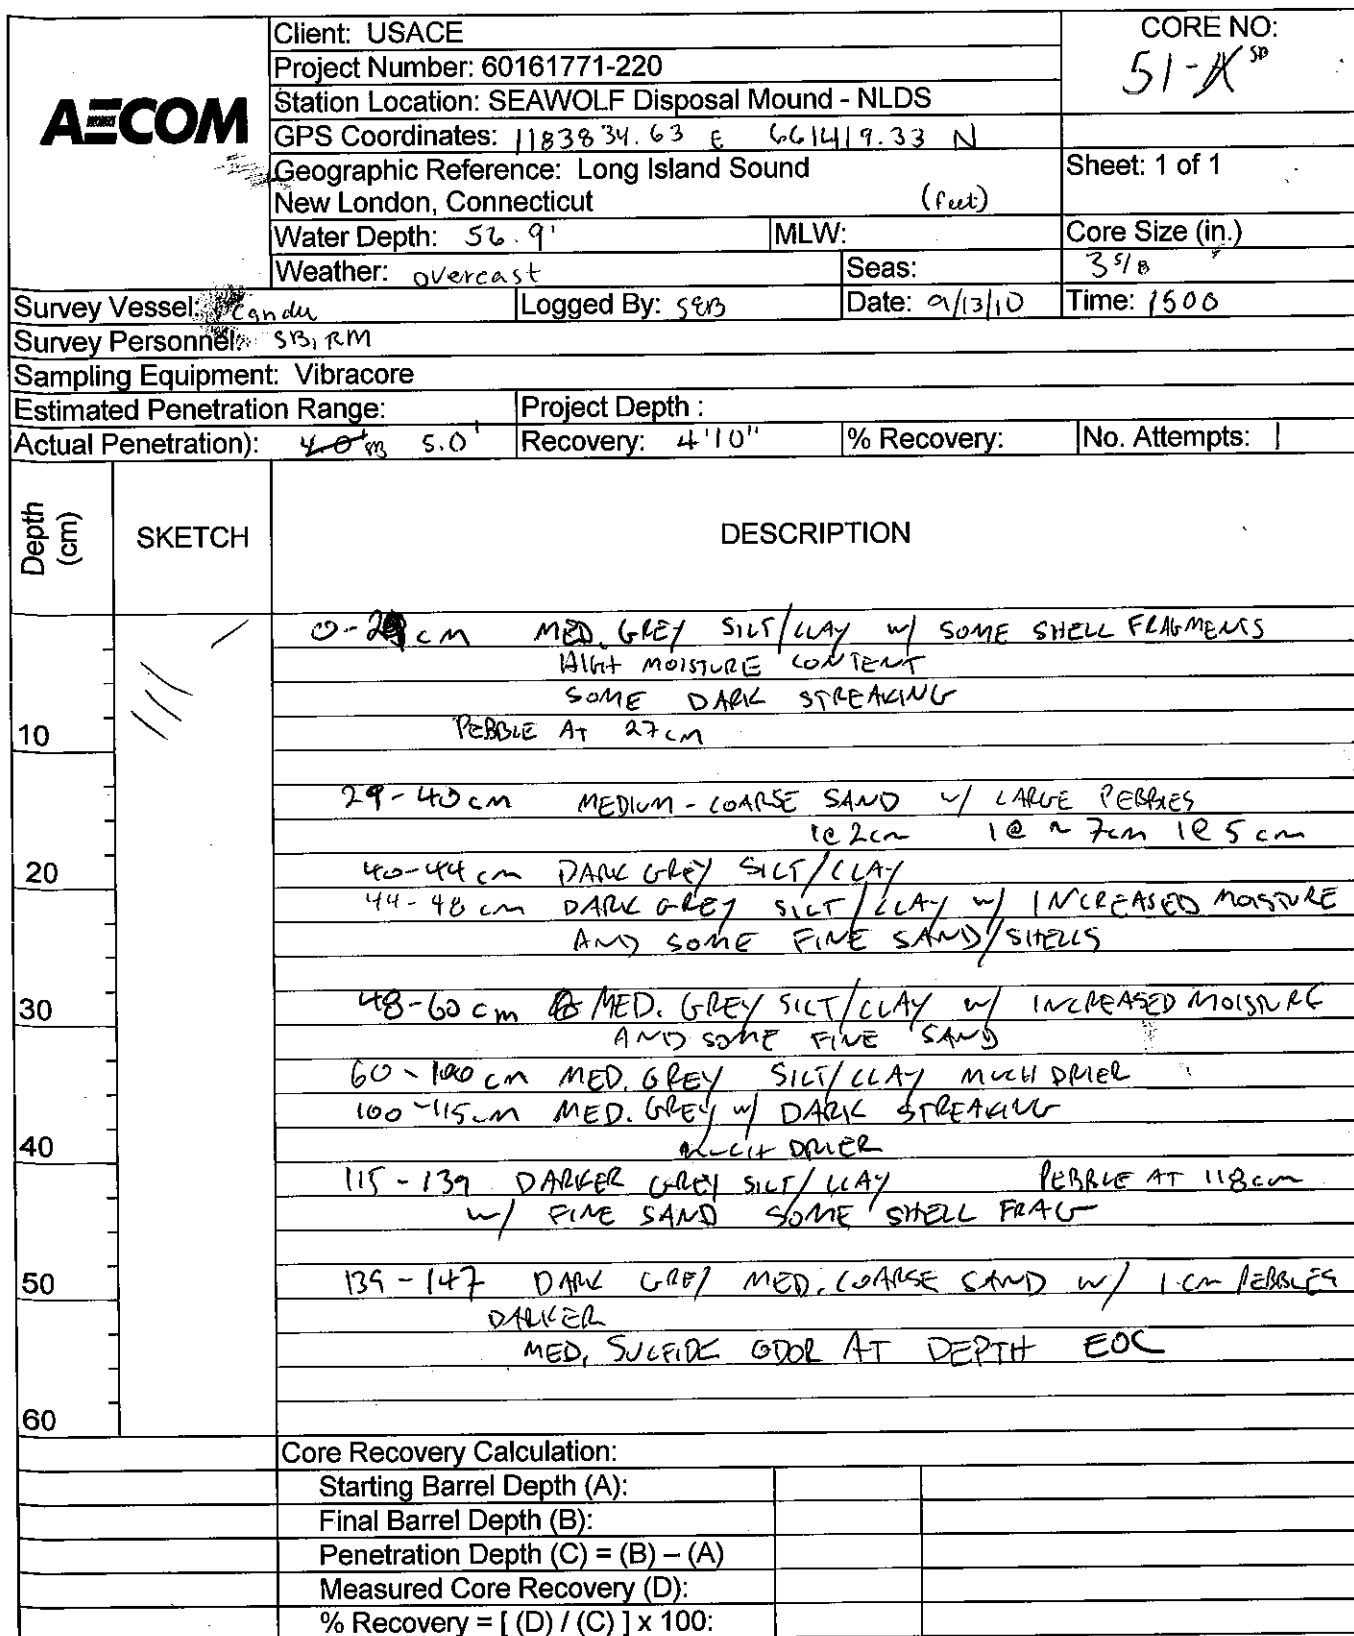 AECOM
Client: USACE
Project Number: 60161771-220
Station Location: SEAWOLF Disposal Mound - NLDS
GPS Coordinates: 1183834.63 E 661419.33 N
Geographic Reference: Long Island Sound
New London, Connecticut (feet)
Water Depth: 56.9' MLW:
Weather: overcast Seas:
CORE NO:
51-A
Sheet: 1 of 1
Core Size (in.)
3 5/8
Survey Vessel: Candu Logged By: SEB Date: 9/13/10 Time: 1500
Survey Personnel: SB, RM
Sampling Equipment: Vibracore
Estimated Penetration Range: Project Depth :
Actual Penetration): 4.0' 5.0' Recovery: 4'10" % Recovery: No. Attempts: 1
Depth (cm) SKETCH DESCRIPTION
0-29 cm MED. GREY SILT/CLAY w/ SOME SHELL FRAGMENTS
HIGH MOISTURE CONTENT
SOME DARK STREAKING
10 PEBBLE AT 27cm
29-40 cm MEDIUM-COARSE SAND w/ LARGE PEBBLES
1@ 2cm 1@ ~ 7cm 1@ 5 cm
20 40-44 cm DARK GREY SILT/CLAY
44-48 cm DARK GREY SILT/CLAY w/ INCREASED MOISTURE
AND SOME FINE SAND/SHELLS
30 48-60 cm MED. GREY SILT/CLAY w/ INCREASED MOISTURE
AND SOME FINE SAND
60-100 cm MED. GREY SILT/CLAY MUCH DRIER
100-115cm MED. GREY w/ DARK STREAKING
40 MUCH DRIER
115-139 DARKER GREY SILT/CLAY PEBBLE AT 118cm
w/ FINE SAND SOME SHELL FRAG
50 139-147 DARK GREY MED. COARSE SAND w/ 1cm PEBBLES
DARKER
MED. SULFIDE ODOR AT DEPTH EOC
60
Core Recovery Calculation:
Starting Barrel Depth (A):
Final Barrel Depth (B):
Penetration Depth (C) = (B) – (A)
Measured Core Recovery (D):
% Recovery = [ (D) / (C) ] x 100: